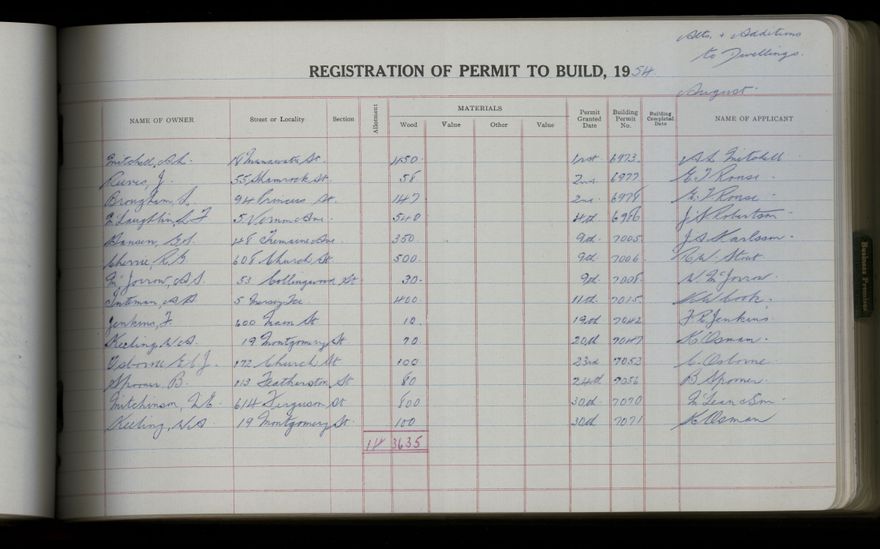 Alts. + Additions
to Dwellings.
REGISTRATION OF PERMIT TO BUILD, 1954
August.
NAME OF OWNER Street or Locality Section Allotment MATERIALS Wood Value Other Value Permit Granted Date Building Permit No. Building Completed Date NAME OF APPLICANT
Mitchell, A.L. Manawatu St. 450. 1st 6973. A.L. Mitchell
Reeves, J. 55 Shamrock St. 58 2nd 6977 E.V. Rouse
Brougham, L. 94 Princess St. 147 2nd 6978 E.V. Rouse
5. Ave. 540 4th 6986 Robertson
Hansen, 48 Tremaine Ave. 350 9th 7005. J.A. Karlsson.
Cherrie, R.G. 608 Church St. 500. 9th 7006 Stout
McJorrow, A.S. 53 Collingwood St 30. 9th 7008 McJorrow.
5 Tce. 400. 11th 7015. Cook.
Jenkins, F. 600 Main St 10. 19th 7042 F.R. Jenkins
Keeling, W.A. 19 Montgomery St 70 20th 7047 K. Osman.
Osborne 172 Church St 100 23rd 7053 Osborne
Spooner, B. 113 Featherston St 80 24th 7056 B Spooner
Mitchinson, 614 Ferguson St 800 30th 7070 McLean & Son.
Keeling, W.A. 19 Montgomery St. 100 30th 7071 K Osman
14 3635
Business Premises